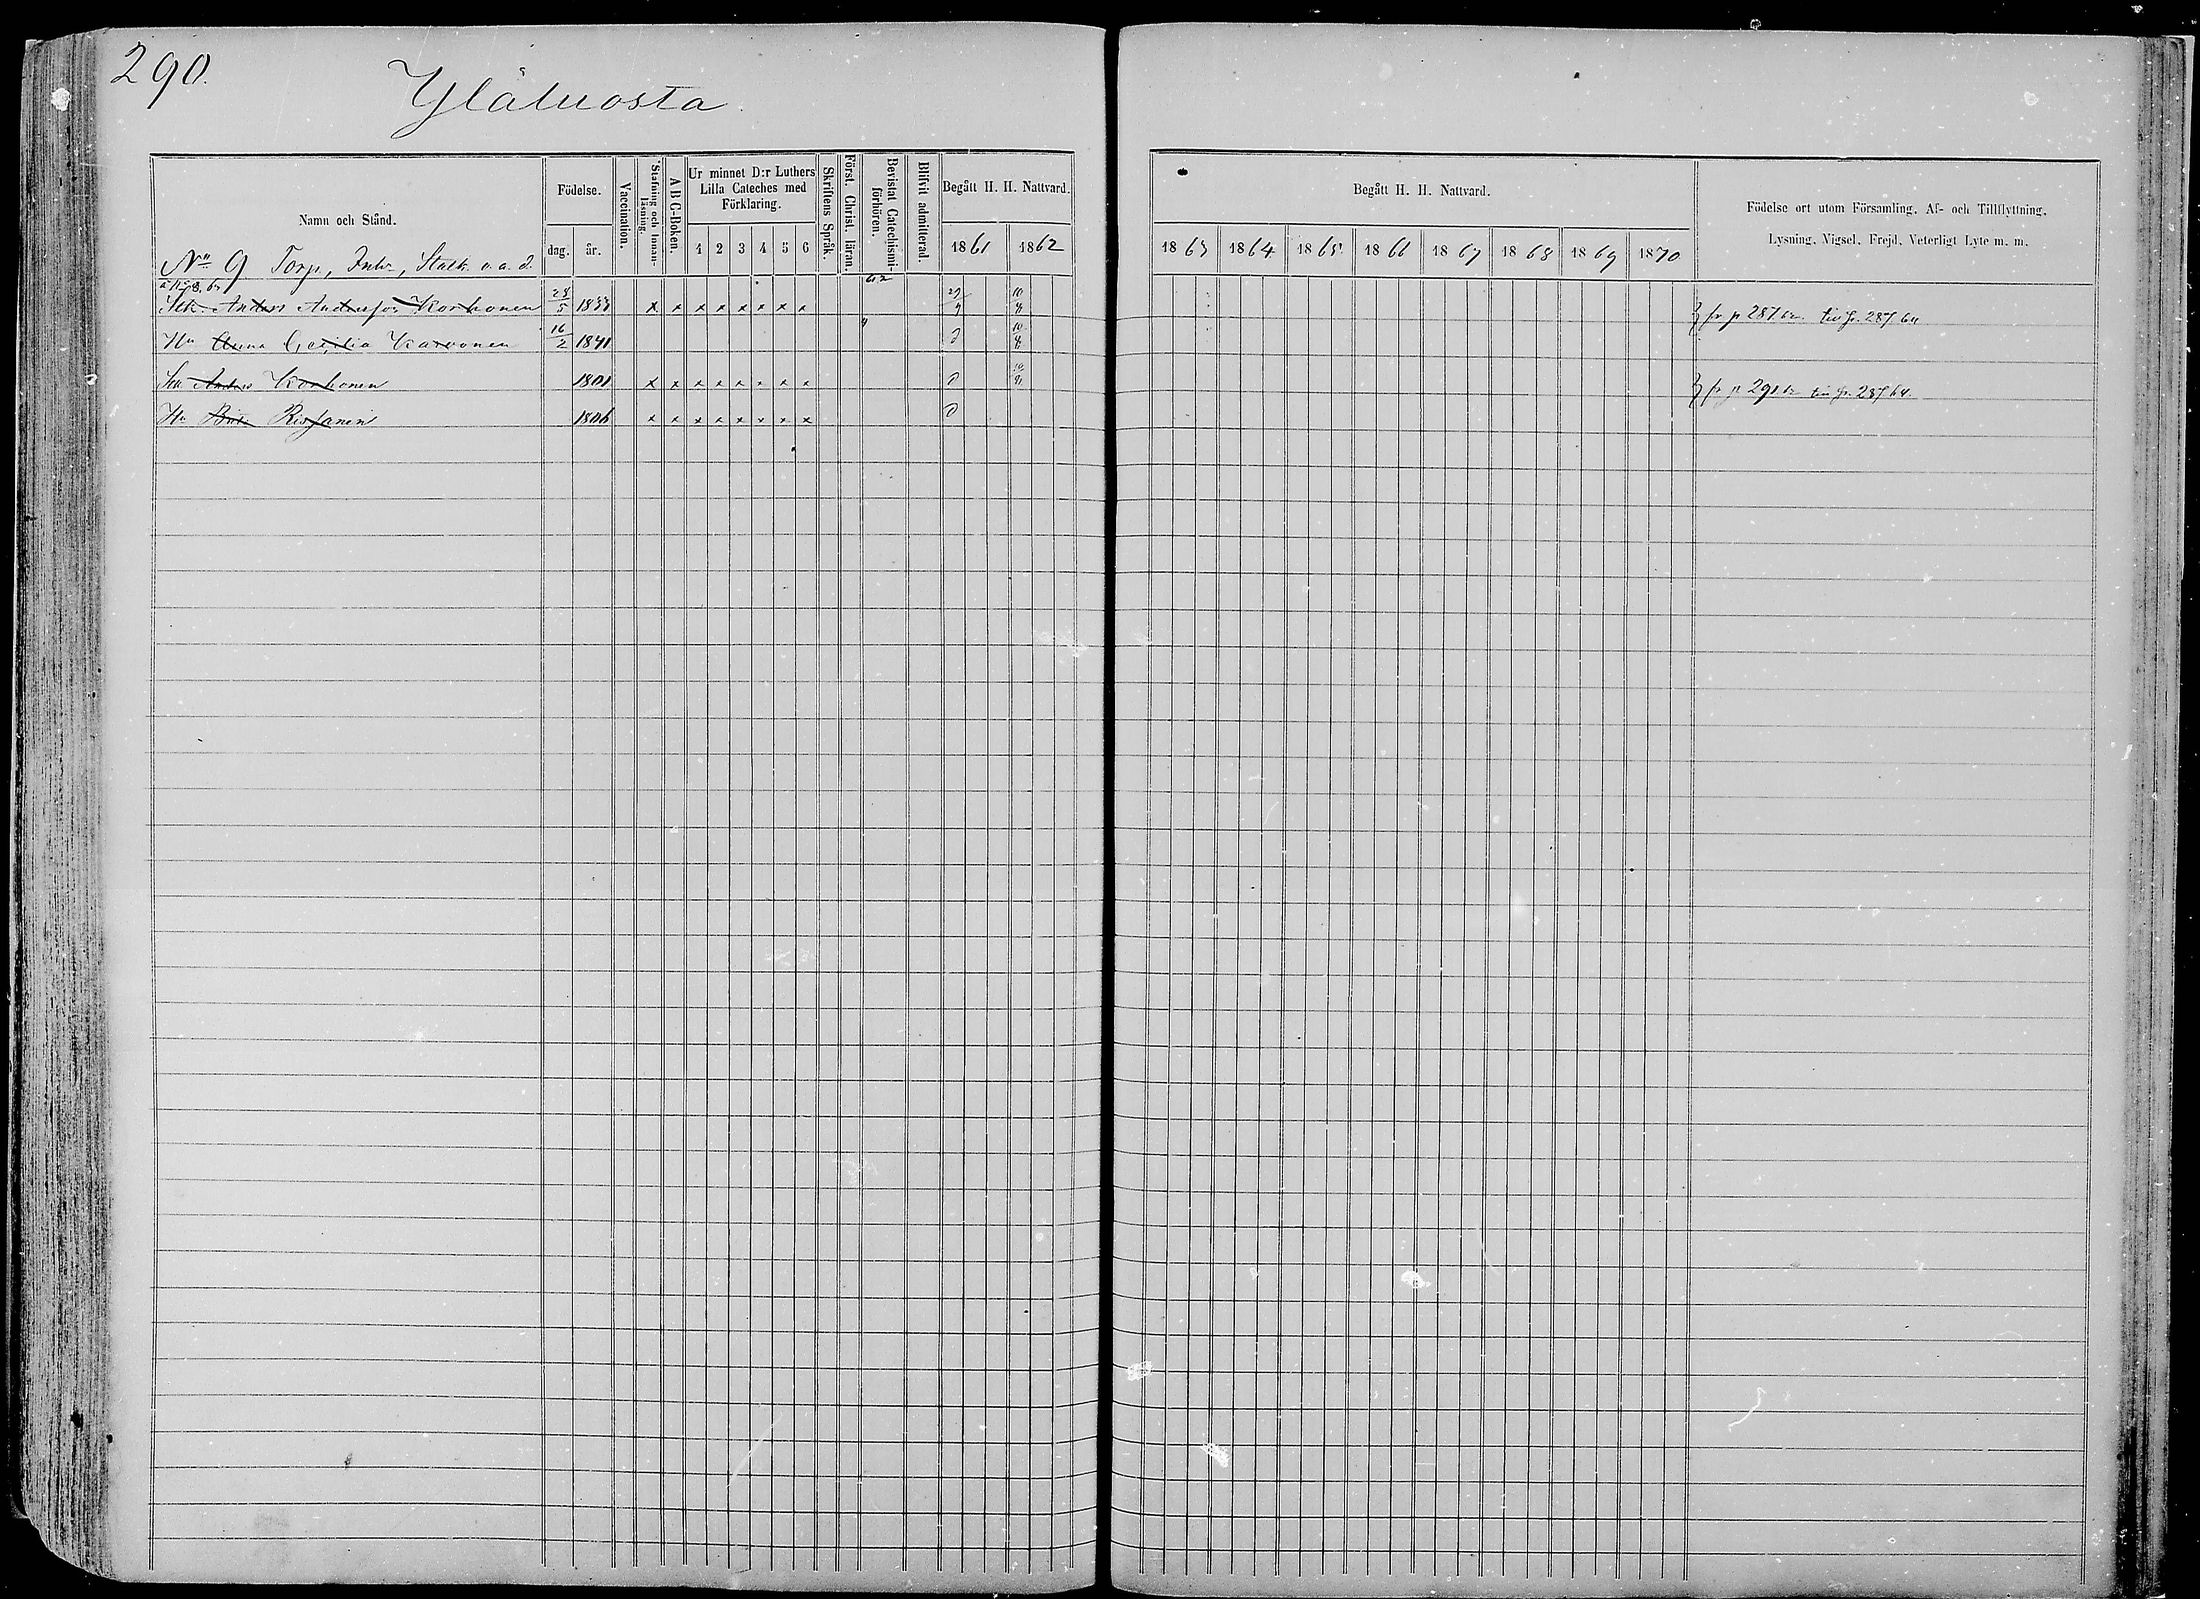 290.
Yläluosta
Namn och Stånd.
Födelse.
dag. år.
Vaccination.
Stafning och Innanläsning.
A B C-Boken.
Ur minnet D:r Luthers Lilla Cateches med Förklaring.
1 2 3 4 5 6
Skriftens Språk.
Först. Christ. läran.
Bevistat Catechismiförhören.
Blifvit admitterad.
Begått H. H. Nattvard.
1861 1862
Begått H. H. Nattvard.
1863 1864 1865 1866 1867 1868 1869 1870
Födelse ort utom Församling. Af- och Tillflyttning,
Lysning, Vigsel, Frejd, Veterligt Lyte m. m.
No 9 Torp., Inh., Statk. o. a. d.
62
Anders Andersson Korhonen 28/5 1833 x x x x x x x x 29/9 10/8 fr p 287 62 till p. 287 64
Hu Anna Cecilia Karvonen 16/2 1841 10/8
Anders Korhonen 1801 x x x x x x x x fr p 291 62 till p. 287 64.
Hu Brita Rissanen 1806 x x x x x x x x